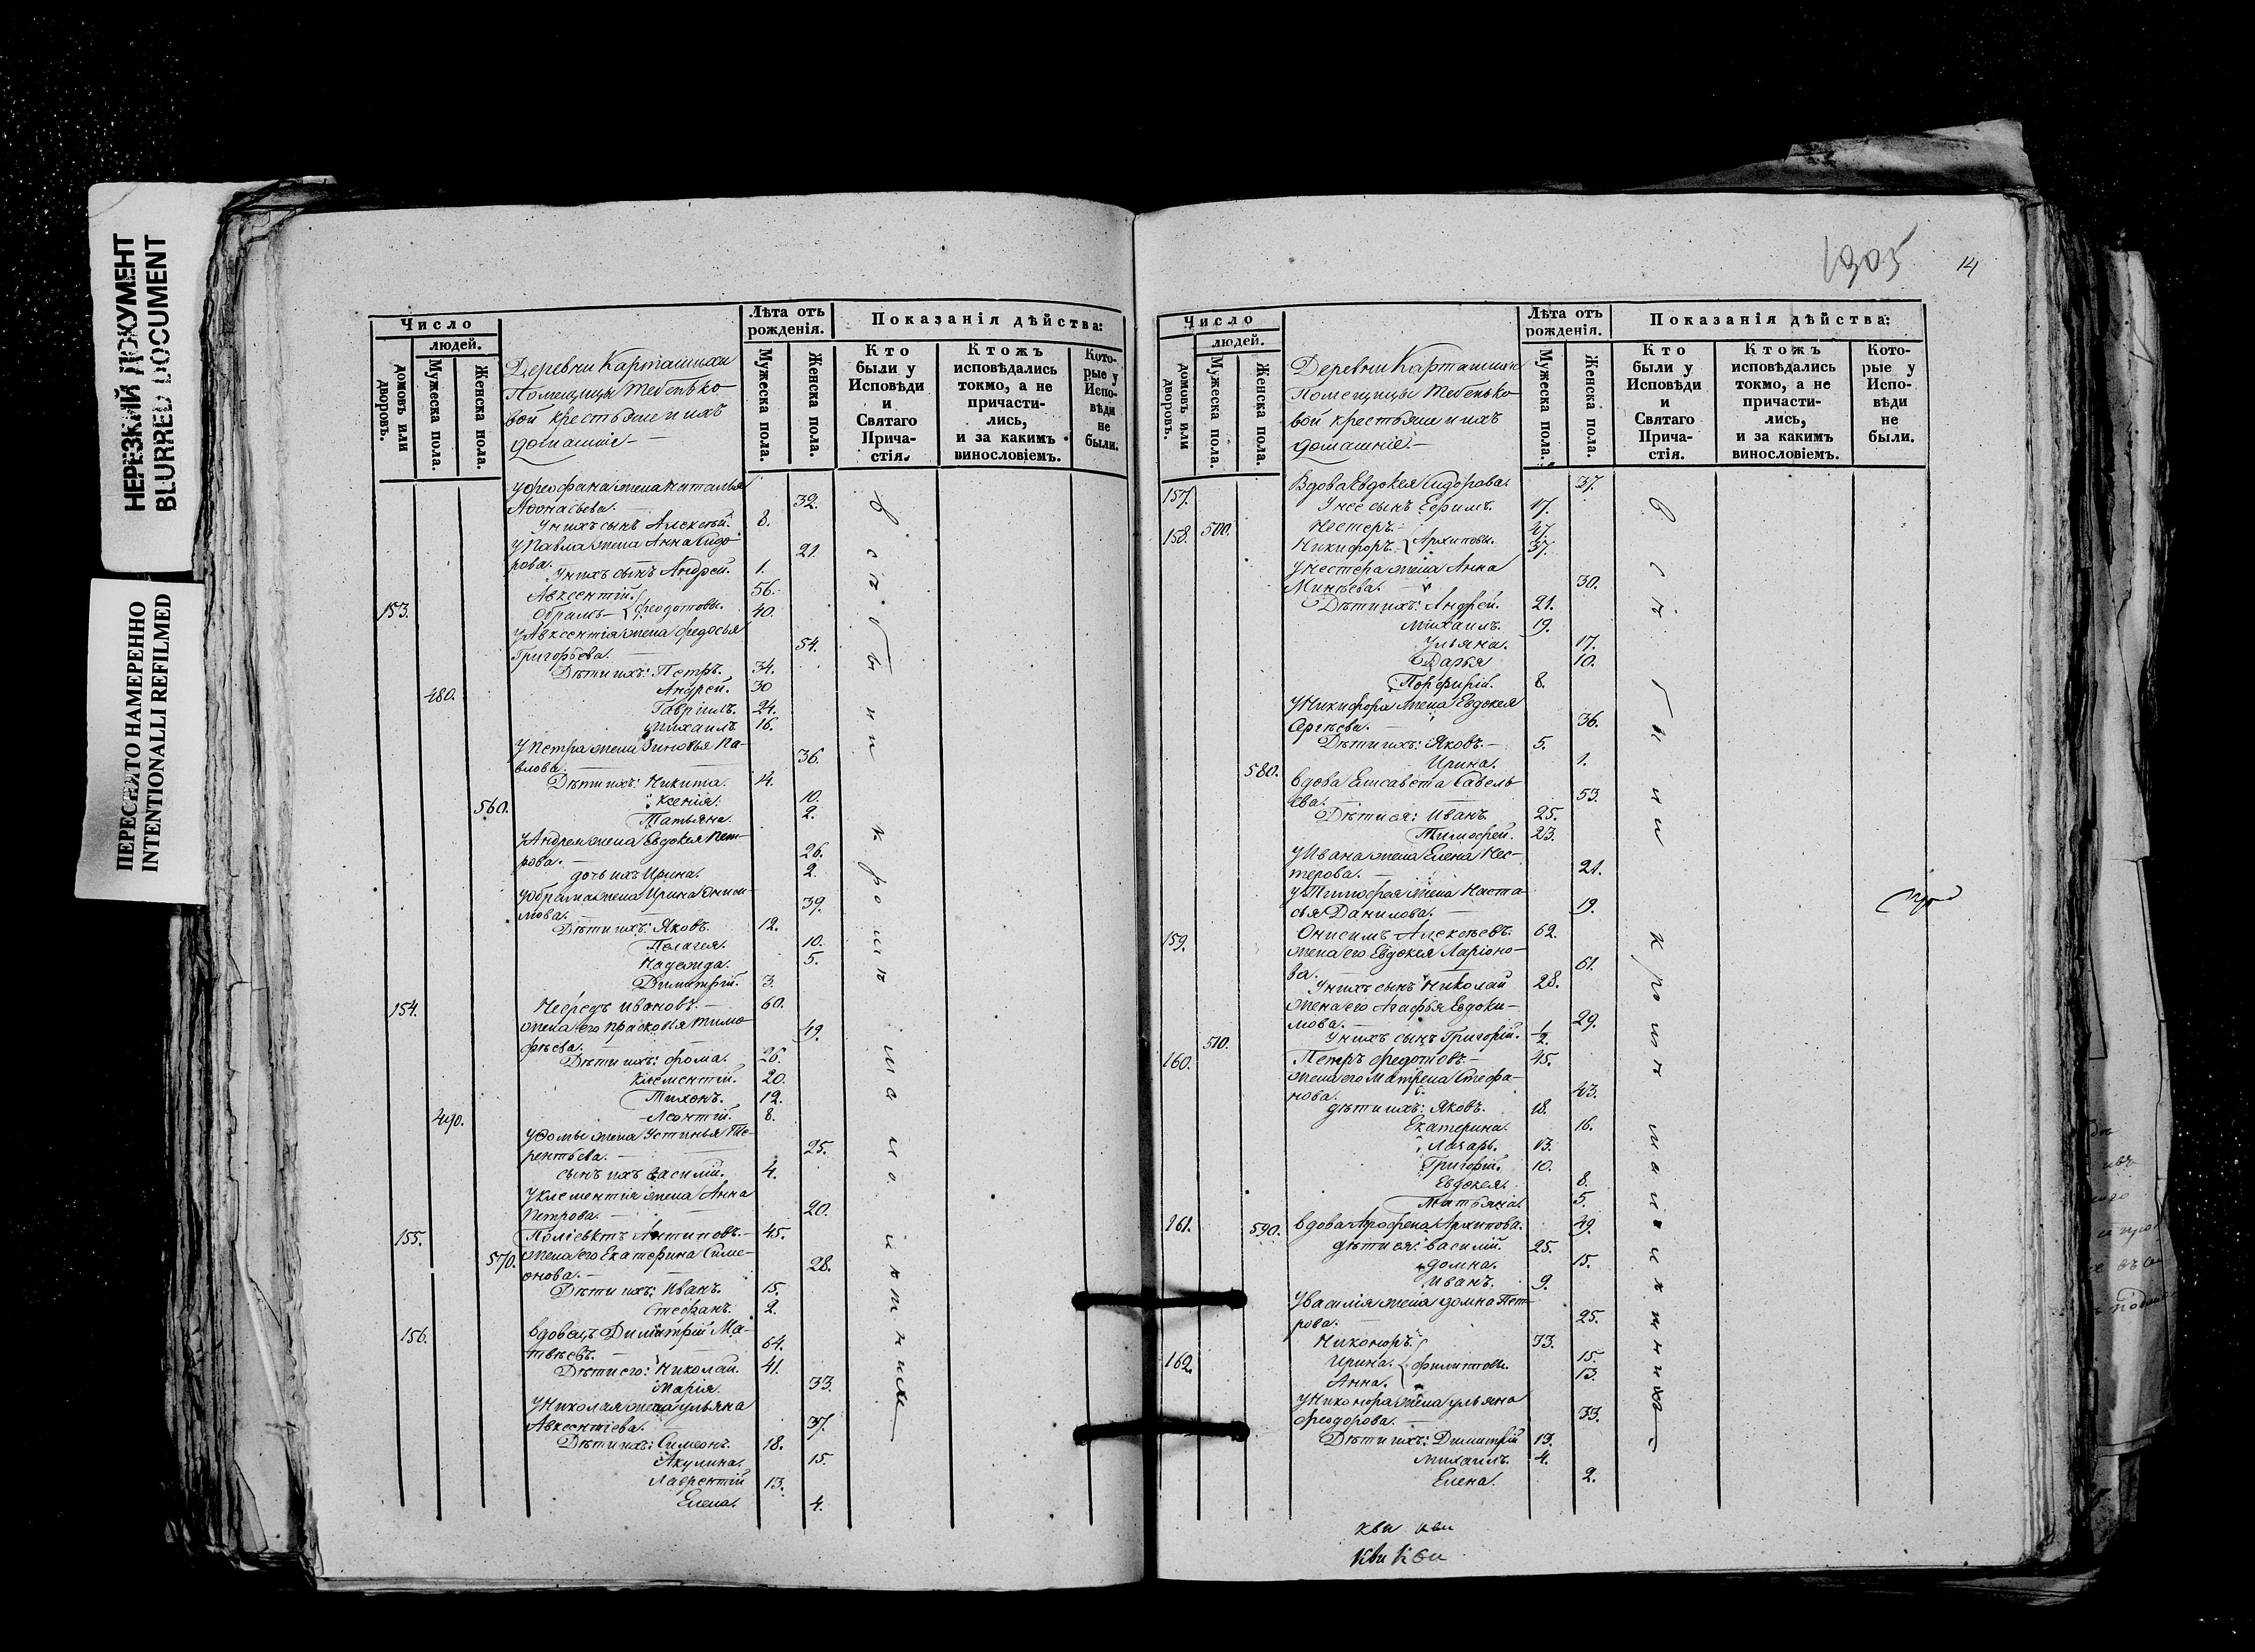 НЕРЕЗКИЙ ДОКУМЕНТ
BLURRED DOCUMENT
ПЕРЕСНЯТО НАМЕРЕННО
INTENTIONALLI REFILMED
Число
людей.
домовъ или дворовъ.
Мужеска пола.
Женска пола.
Деревни Карташихи
Помещицы Тебенько-
вой крестьяне и ихъ
домашніе
Лѣта отъ рожденія.
Мужеска пола.
Женска пола.
Показанія дѣйства:
Кто были у Исповѣди и Святаго Прича-стія.
Ктожъ исповѣдались токмо, а не причасти-лись, и за какимъ винословіемъ.
Кото-рые у Испо-вѣди не были.
У Феофана жена Наталья
Афонасьева. 32.
У нихъ сынъ Алексѣй. 8.
У Павла жена Анна Сидо-
рова. 21.
У нихъ сынъ Андрей. 1.
Авксентій. 56.
153. Абрамъ Феодотовы. 40.
У Авксентія жена Федосья
Григорьева. 54.
Дѣти ихъ: Петръ. 34.
480. Андрей. 30
Гавріилъ. 24.
Михаилъ. 16.
У Петра жена Зиновья Па-
влова. 36.
Дѣти ихъ: Никита. 14.
560. Ксенія. 10.
Татьяна. 2.
У Андрея жена Евдокея Пет-
рова. 26.
дочь ихъ Ирина. 2.
У Абрама жена ИринаОниси-
мова. 39.
Дѣти ихъ: Яковъ. 12.
Пелагея. 10.
Надежда. 5.
Димитрій. 3.
154. Ивановъ. 60.
жена его Прасковья Тимо-
фѣева. 49.
Дѣти ихъ: Фома. 26.
Клементій. 20.
Тихонъ. 12.
490. Леонтій. 8.
У Фомы жена Устинья Те-
рентьева. 25.
сынъ ихъ Василій. 4.
У Клементія жена Анна
Петрова. 20.
155. Поліевктъ Антиповъ. 45.
570. жена его Екатерина Симе-
онова. 28.
Дѣти ихъ: Иванъ. 15.
Стефанъ. 2.
156. вдовецъ Димитрій Ма-
твѣевъ. 64.
Дѣти его: Николай. 41.
Марія. 33.
У Николая жена Ульяна
Авксентіева. 37.
Дѣти ихъ: Симеонъ. 18.
Акулина. 15.
Лаврентій 13.
Елена. 4.
1305
14
Число
людей.
домовъ или дворовъ.
Мужеска пола.
Женска пола.
Деревни Карташихи
Помещицы Тебенько-
вой крестьяне и ихъ
домашніе.
Лѣта отъ рожденія.
Мужеска пола.
Женска пола.
Показанія дѣйства:
Кто были у Исповѣди и Святаго Прича-стія.
Ктожъ исповѣдались токмо, а не причасти-лись, и за какимъ винословіемъ.
Кото-рые у Испо-вѣди не были.
157. Вдова Евдокея Сидорова. 37.
У нее сынъ Ефимъ. 17.
158. 500. Нестеръ. 47.
Никифоръ. Архиповы. 37.
У Нестера жена Анна
Минѣева. 30.
Дѣти ихъ: Андрей. 21.
Михаилъ. 19.
Ульяна. 17.
Дарья 10.
Порфирій. 8.
У Никифора жена Евдокея
Сергѣева. 36.
Дѣти ихъ: Яковъ. 5.
Ирина. 1.
580. вдова Елисавета Савель-
ева. 53.
Дѣти ея: Иванъ. 25.
Тимофей. 23.
У Ивана жена Елена Нес-
терова. 21.
У Тимофея жена Наста-
сья Данилова. 19.
159. Онисимъ Алексѣевъ. 62.
жена его Евдокея Ларіоно-
ва. 61.
У нихъ сынъ Николай 28.
жена его Агафья Евдоки-
мова. 29.
510. У нихъ сынъ Григорій. 1/2.
160. Петръ Федотовъ. 45.
жена его Матрена Стефа-
нова. 43.
дѣти ихъ: Яковъ. 18.
Екатерина. 16.
Лазарь. 13.
Григорій. 10.
Евдокея. 8.
Татьяна. 5.
161. 590. вдова Агрофена Архипова. 49.
дѣти ея: Василій. 25.
Домна. 15.
Иванъ. 9.
У Василія жена Домна Пет-
рова. 25.
Никоноръ. 33.
162. Ирина. Филиповы. 15.
Анна. 13.
У Никонора жена Ульяна
Феодорова. 33.
Дѣти ихъ: Димитрій 13.
Михаилъ. 4.
Елена. 2.
кви кви
Кви Кви